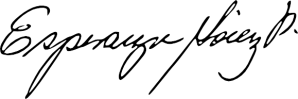 Esperanza Sáenz P.